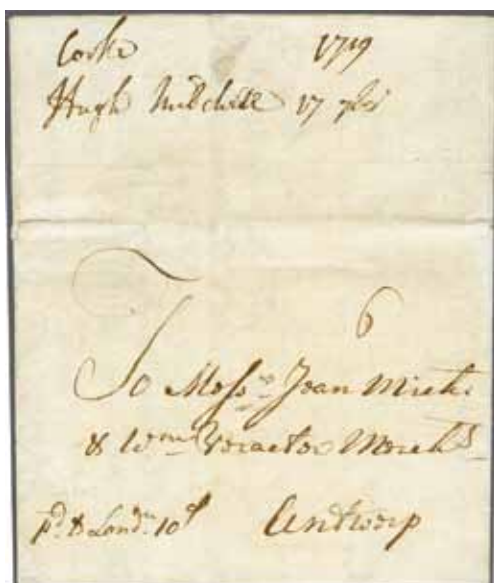 Corke 1719
Hugh Mitchell 17 7br
6
To Messrs Joan Mich:
& Wm Merchts
pd to Londn 10d Antwerp